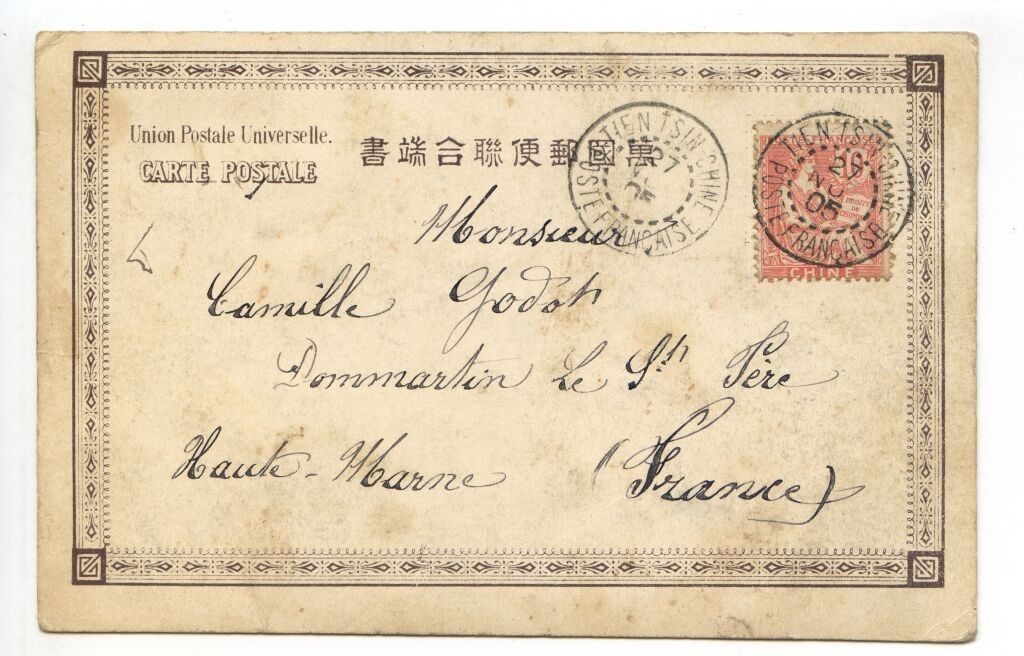 Union Postale Universelle.
CARTE POSTALE
萬國郵便聯合端書
TIEN TSIN CHINE
27
05
POSTE FRANÇAISE
TIEN TSIN CHINE
NO
05
POSTE FRANÇAISE
10
DROITS
DE
CHINE
Monsieur
Camille Godot
Dommartin Le St Père
Haute-Marne (France)